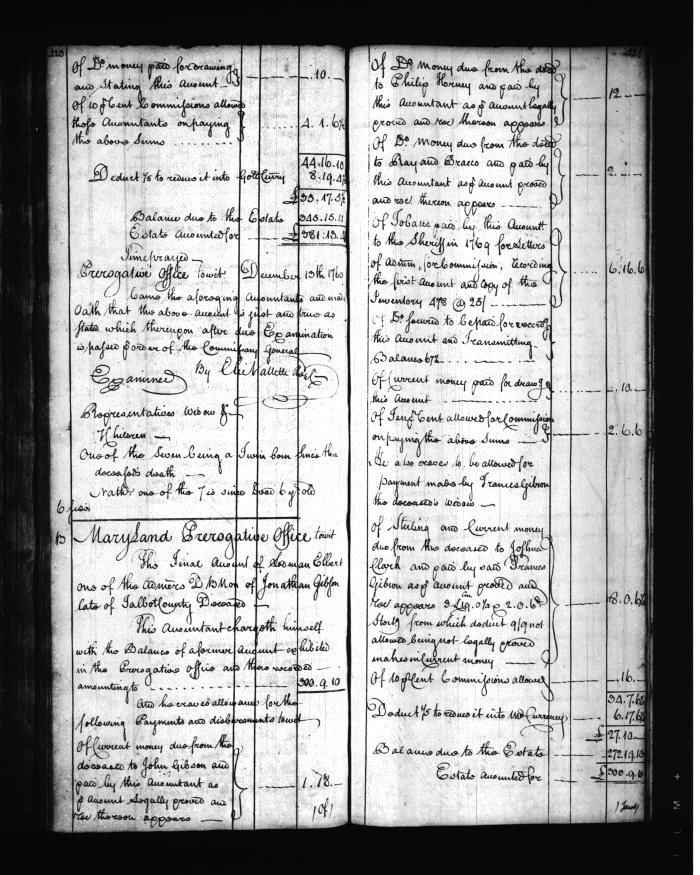 420
Of Do. money paid for drawing
and Stating this Account } 10.
Of 10 P Cent Commissions allowed
these Accountants on paying
the above Sums } 4. 1. 6½
44.16.10
Deduct ⅕ to reduce it into Gold Curry 8.19.4½
£ 35.17.5½
Balance due to the Estate 345.15.11
Estate Accounted for £ 381.13.4
Time prayed
Prerogative Office towit December 13th 1760
Came the aforegoing Accountants and made
Oath that the above Account is just and true as
Stated which thereupon after due Examination
is passed P order of the Commissary General
By Elie Vallette
Examined
Representatives Widow &
7 Children
One of the Seven being a Twin born Since the
deceased's death
Nath. one of the 7 is since Dead 6 y old
Maryland Prerogative Office towit
The Final Account of Lodman Elbert
one of the Admors D B Non of Jonathan Gibson
late of Talbot County Deceased
This Accountant chargeth himself
with the Balance of a former Account exhibited
in the Prerogative Office and there recorded
amounting to 300.9.10
And he craves allowance for the
following Payments and disbursements towit
Of Current money due from the
deceased to John Gibson and
paid by this Accountant as
P Account Legally proved and
rec thereon appears } 1.18.
421
Of Do. Money due from the deced
to Philip Horney and paid by
this Accountant as P Account legally
proved and rec thereon appears } 12.
Of Do. Money due from the deced
to Bray and Bracco and paid by
this Accountant as P Account proved
and rec thereon appears } 2.
Of Tobacco paid by this Accountt.
to the Sheriff in 1769 for Letters
of Admn., for Commission, recording
the first Account and Copy of the
Inventory 498 @ 25/ } 6.16.6
Of Do. secured to be paid for recordg
this Account and Transmitting
Balance 67½
Of Current money paid for drawg
this Account } 10.
Of Ten P Cent allowed for Commission
on paying the above Sums } 2.6.6
He also craves to be allowed for
Payment made by Frances Gibson
the deceased's widow
Of Sterling and Current money
due from the deceased to Joshua
Clark and paid by said Frances
Gibson as P Account proved and
rec appears
Sterlg from which deduct 9/9 not
allowed being not legally proved
makes in Current money } 8.0.6½
Of 10 P Cent Commissions allowed 16.
34.7.6½
Deduct ⅕ to reduce it into Currency 6.17.6½
£ 27.10.
Balance due to the Estate 272.19.10
Estate Accounted for £ 300.9.10